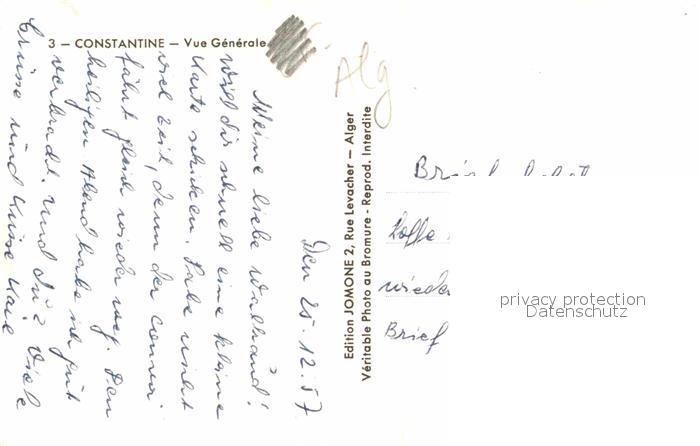 3 — CONSTANTINE — Vue Générale
Alg
Den 25.12.57
Meine liebe Waltraud!
will dir schnell eine kleine
Karte schicken. Habe nicht
viel Zeit, denn der Convoi
fährt gleich wieder weg. Den
heiligen Abend habe ich gut
verbracht. Und Du? Viele
Grüsse und Küsse
Edition JOMONE 2, Rue Levacher — Alger
Véritable Photo au Bromure - Reprod. Interdite
Hoffe
wieder
Brief
privacy protection
Datenschutz